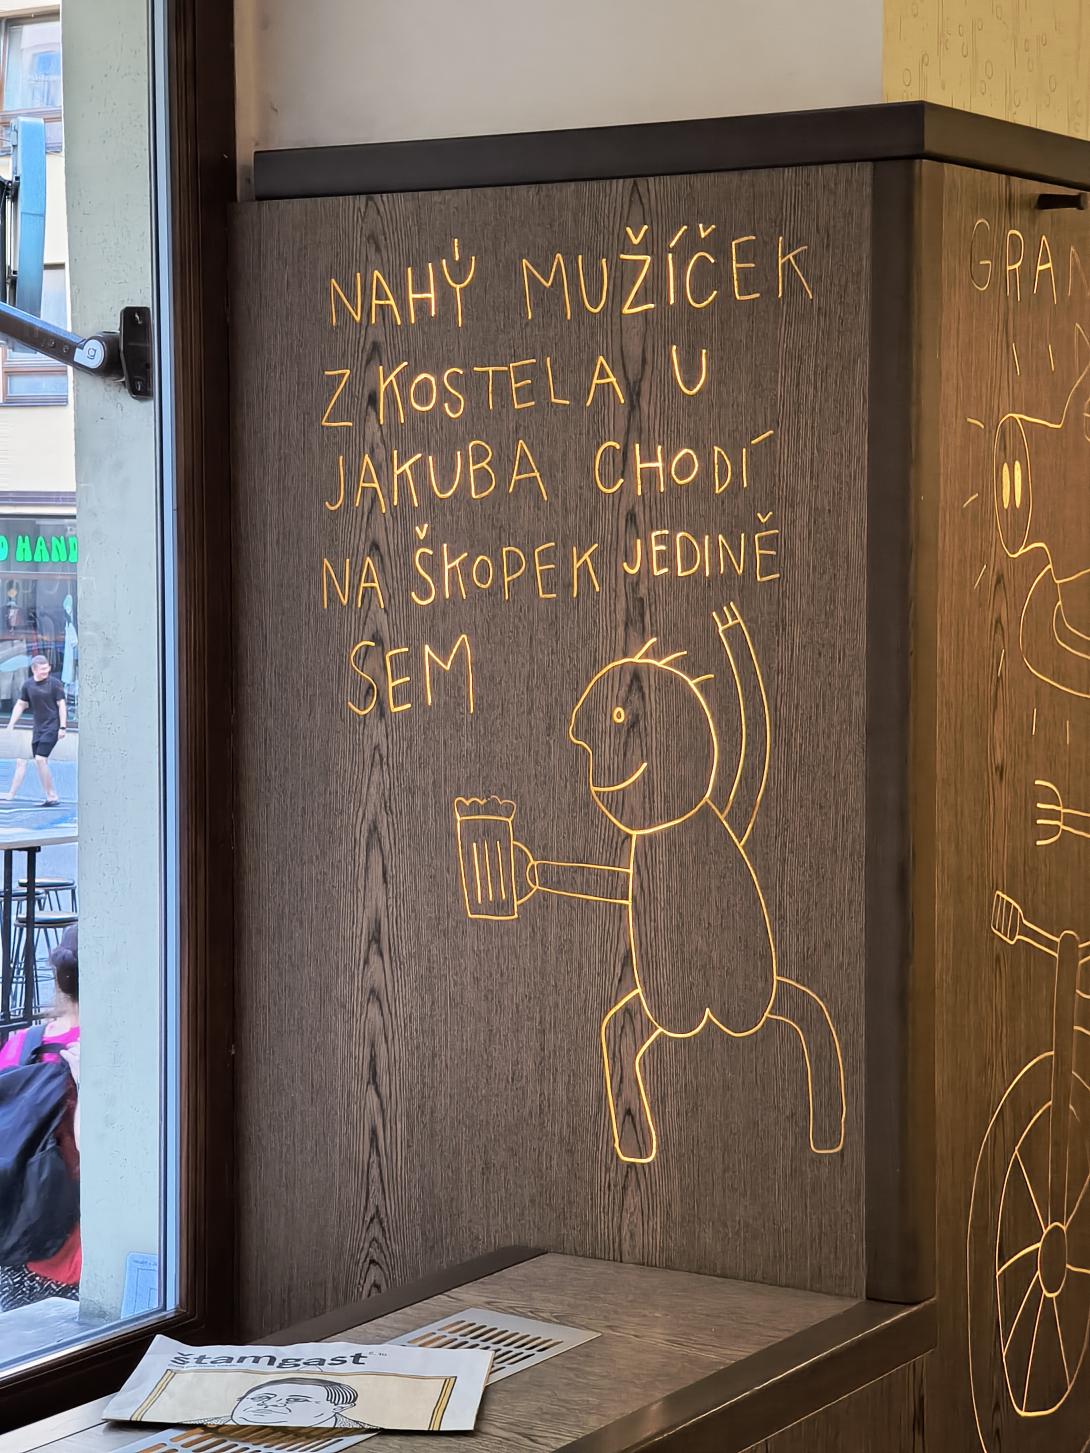 NAHÝ MUŽÍČEK
Z KOSTELA U
JAKUBA CHODÍ
NA ŠKOPEK JEDINĚ
SEM
GRAN
HAND
štamgast